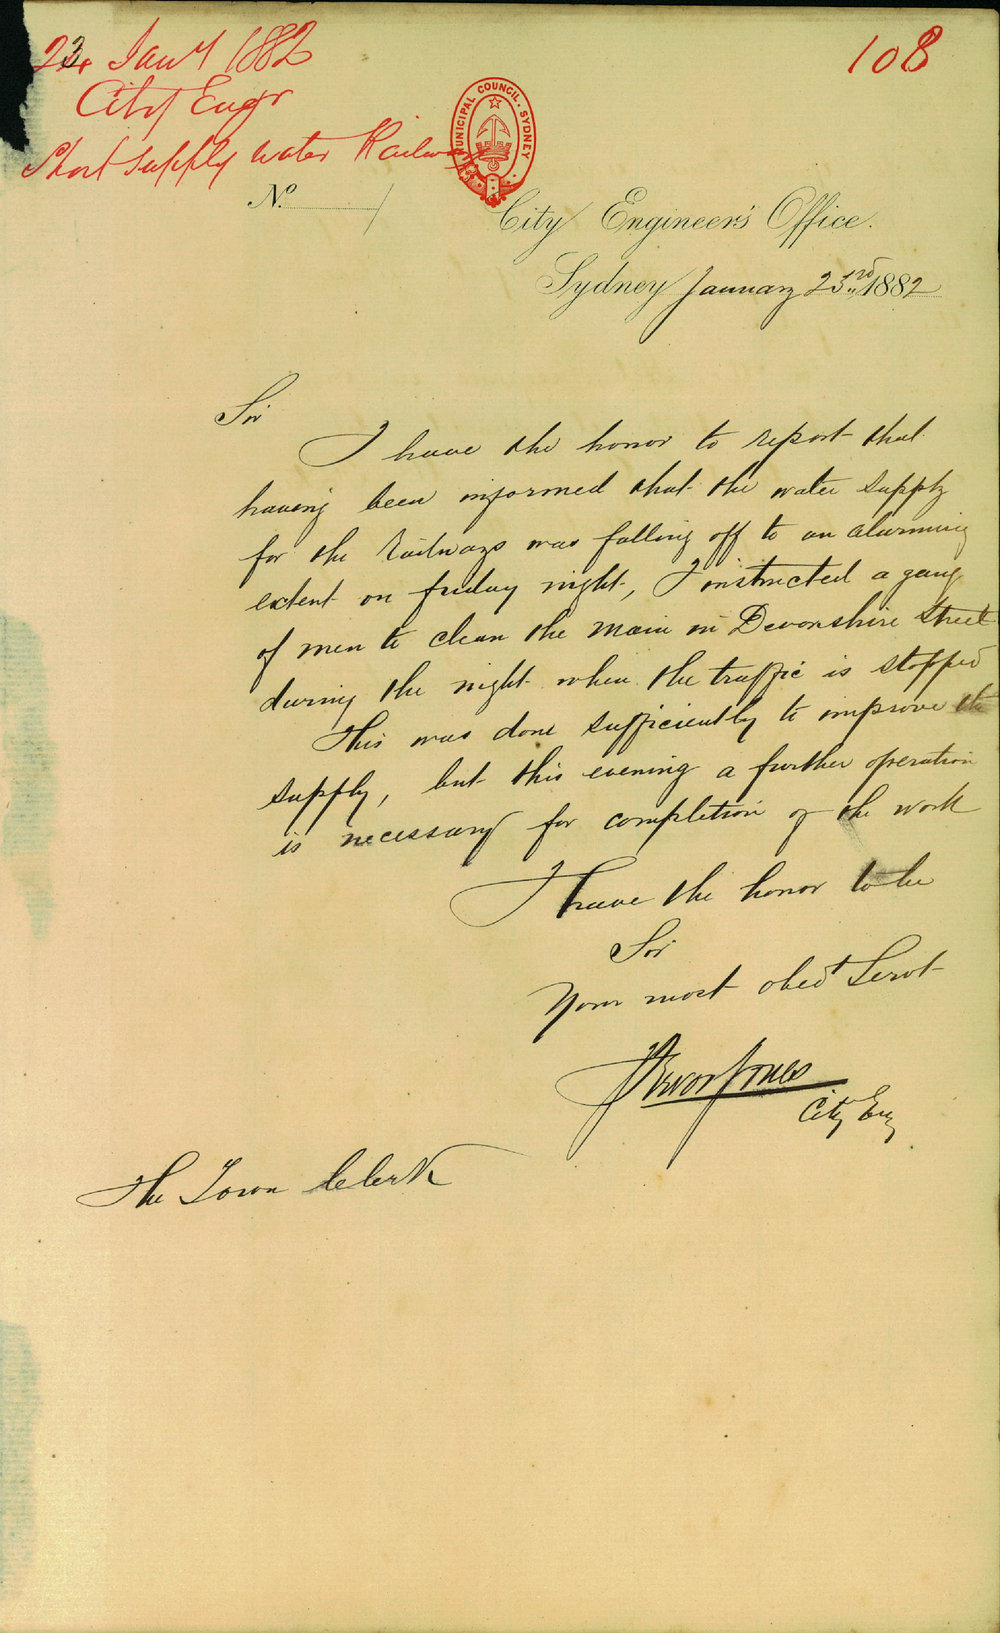 23 Jany 1882
108
City Engr
Short supply water Railway
MUNICIPAL COUNCIL. SYDNEY
No.
City Engineer's Office.
Sydney January 23rd 1882
Sir
I have the honor to report that
having been informed that the water supply
for the railways was falling off to an alarming
extent on friday night, I instructed a gang
of men to clean the main in Devonshire Street
during the night when the traffic is stopped
This was done sufficiently to improve the
supply, but this evening a further operation
is necessary for completion of the work
I have the honor to be
Sir
Your most obedt Servt
Trevor Jones
City Eng
The Town Clerk